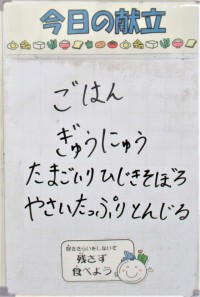 今日の献立
ごはん
ぎゅうにゅう
たまごいりひじきそぼろ
やさいたっぷりとんじる
好ききらいをしないで
残さず
食べよう